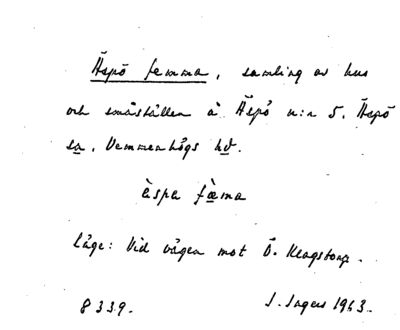 Äspö femma, samling av hus
och småställen å Äspö n:r 5. Äspö
sn, Vemmenhögs hd.
èspa fœma
Läge: Vid vägen mot Ö. Klagstorp.
8339. I. Ingers 1963.